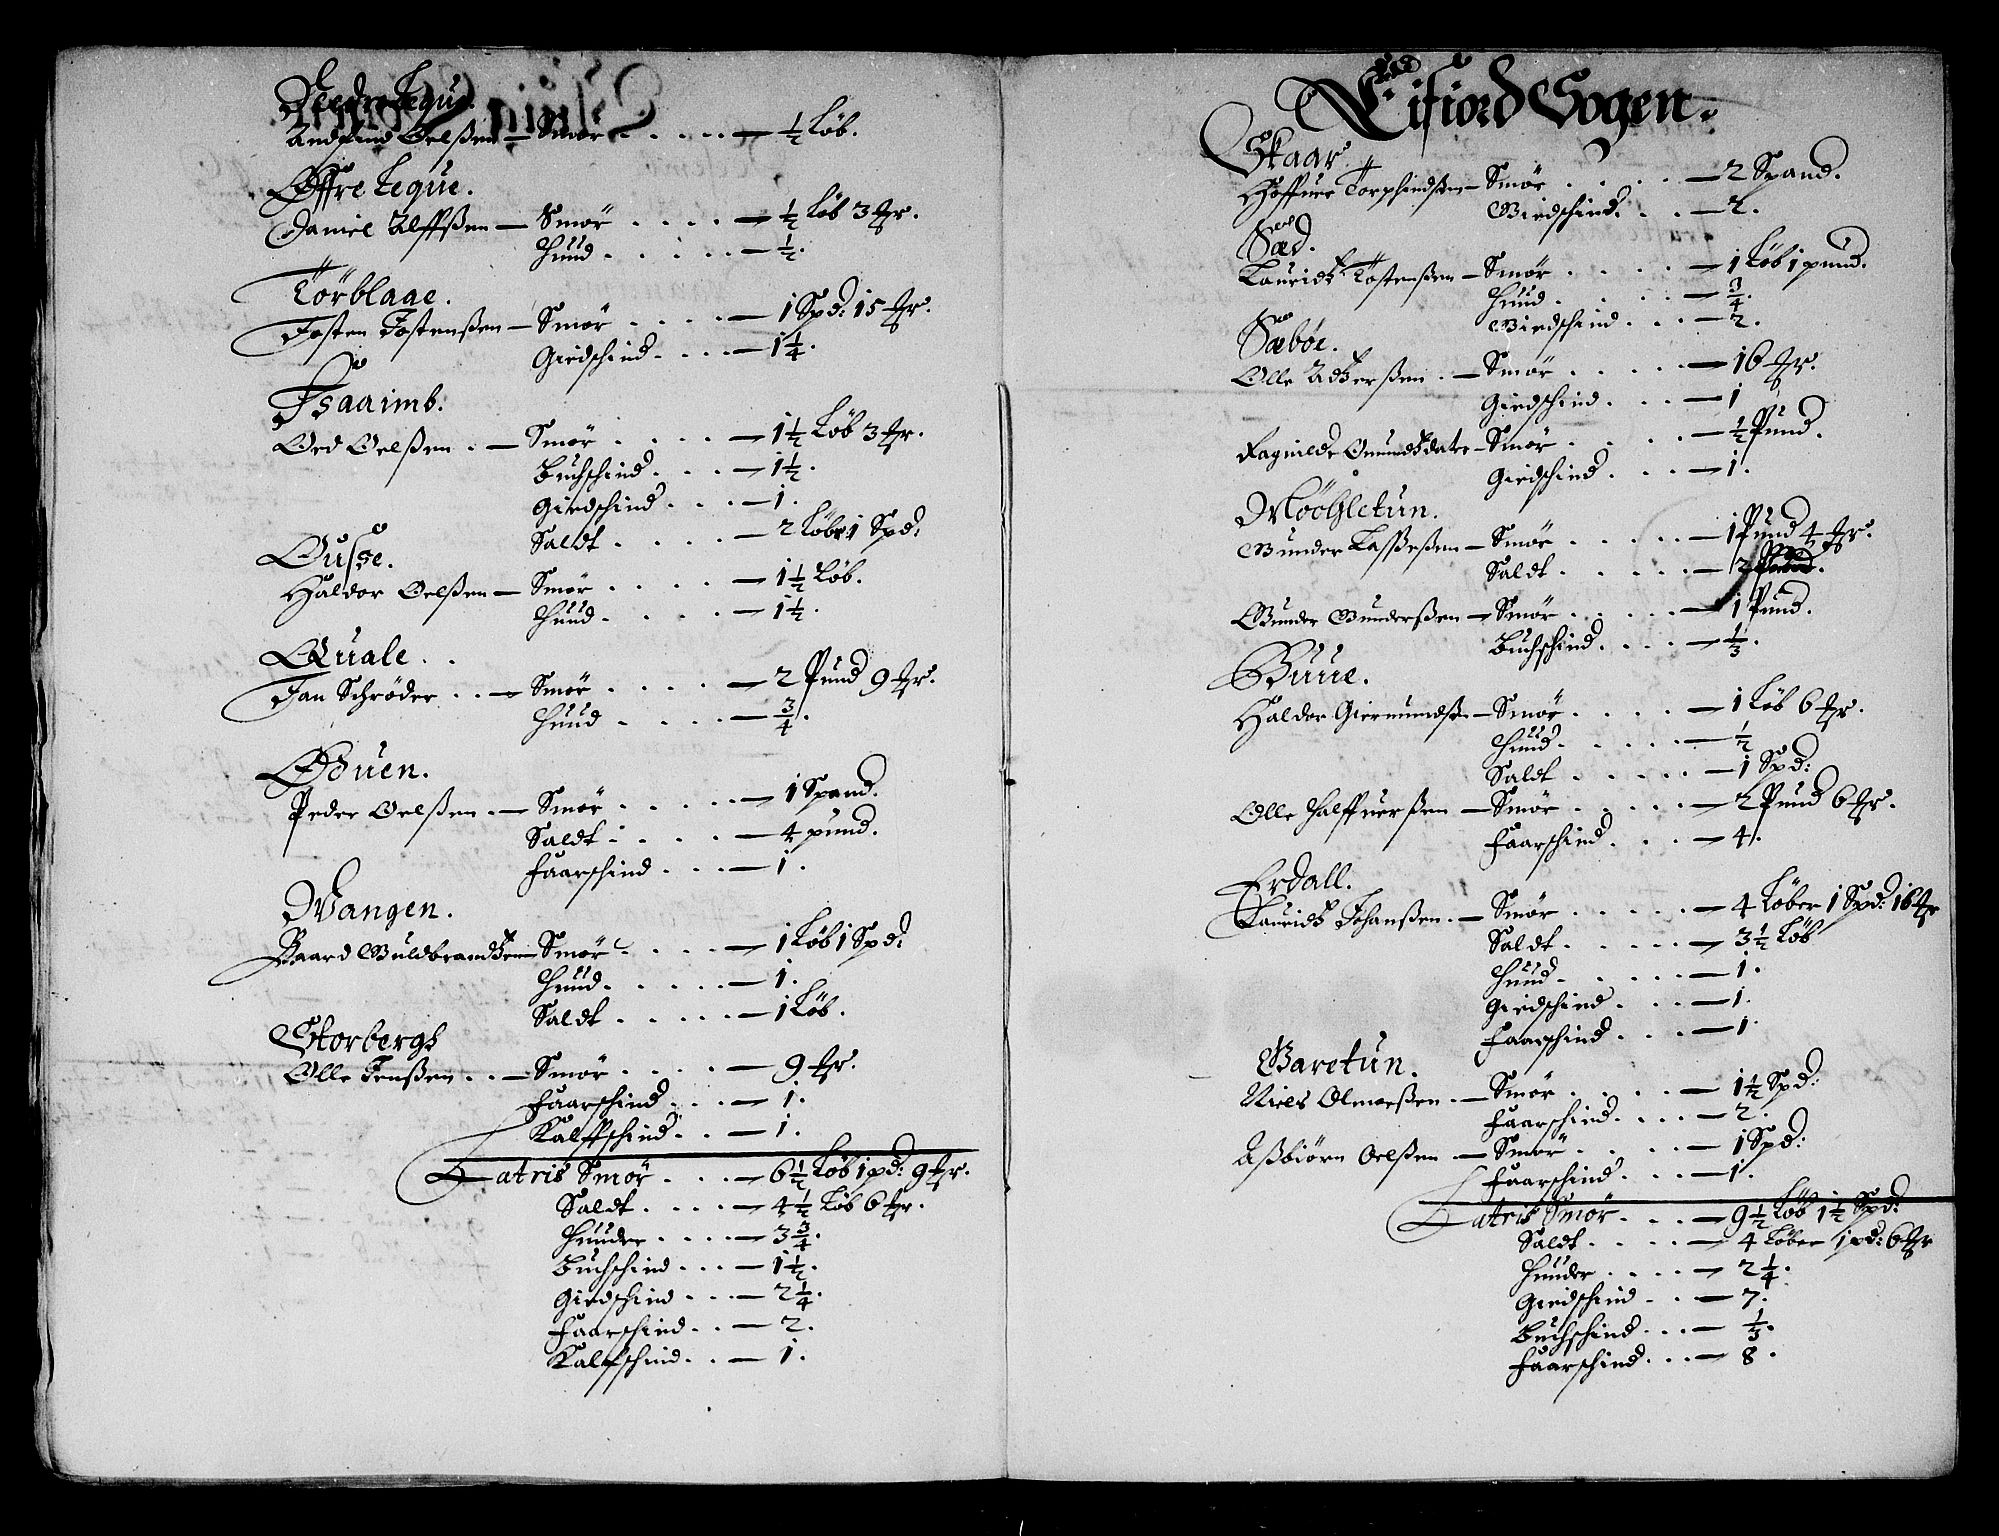 Needre Legue.
Andfind Oelßen — Smør . . . . — ½ Løb.
Øffre Legue.
Daniel Ulffßen — Smør . . . . — ½ Løb 3 ℔r.
Huud . . . . . — ½.
Torblaae.
Josten Jostenßen — Smør . . . . — 1 Spd: 15 ℔r.
Giedschind . . . . — 1¼.
Isaaimb.
Ord Oelßen . — Smør . . . . — 1½ Løb 3 ℔r.
Buchschind . . . — 1½.
Giedschind . . . — 1.
Saldt . . . . — 2 Løb 1 Spd:
Ousse.
Haldor Oelßen — Smør . . . . — 1½ Løb.
Huud . . . . — 1½.
Quale . .
Jan Schrøder . . — Smør . . . . — 2 Pund 9 ℔r.
Huud . . . . — ¾.
Øduen.
Peder Oelßen . — Smør . . . . — 1 Spand.
Saldt . . . . — 4 pund.
Faarschind . . . — 1.
Wangen.
Baard Guldbrandßen — Smør . . . . — 1 Løb 1 Spd:
Huud . . . . . — 1.
Saldt . . . . . — 1 Løb.
Storbergh
Olle Jenßen . . — Smør . . . . — 9 ℔r.
Faarschind . . . — 1.
Kalffschind . . — 1.
Latris Smør . . . — 6½ Løb 1 pd: 9 ℔r.
Saldt . . . . — 4½ Løb 6 ℔r.
Huuder . . . . — 3¾.
Buchschind . . . — 1½.
Giedschind . . . — 2¼.
Faarschind . . — 2.
Kalffschind . . — 1.
Eifiord Sogen.
Skaar.
Hoffuer Torphindßen — Smør . . . . — 2 Spand.
Giedschind . . . — 2.
Sæd.
Lauridtz Tostenßen — Smør . . . . — 1 Løb 1 pund.
Huud . . . . . — ¾.
Giedschind . . . — 2.
Sæbøe.
Olle Adtzerßen . — Smør . . . . . — 16 ℔r.
Giedschind . . . — 1
Ragnilde Omundtzdater — Smør . . . . — ½ Pund.
Giedschind . . . — 1.
Møchletun.
Gunder Laßeßen — Smør . . . . . — 1 Pund 4 ℔r.
Saldt . . . . . — 2
Gunder Gunderßen — Smør . . . . . — 1 Pund.
Buchschind . . . . — ⅓.
Buue.
Haldor Giermundß. — Smør . . . . — 1 Løb 6 ℔r.
Huud . . . . . — ½
Saldt . . . . . — 1 Spd:
Olle Halffuerßen — Smør . . . . — 2 Pund 6 ℔r.
Faarschind . . . — 4.
Erdall.
Lauridtz Johanßen . — Smør . . . . . — 4 Løber 1 Spd: 16 ℔r
Saldt . . . . . — 3½ Løb
Huud . . . . . — 1.
Giedschind . . . — 1.
Faarschind . . . — 1.
Garetun.
Niels Olmoeßen . — Smør . . . . — 1½ Spd:
Faarschind . . . — 2.
Aßbiørn Oelßen — Smør . . . . — 1 Spd:
Faarschind . . . — 1.
Latris Smør . . . — 9½ Løb 1½ Spd:
Saldt . . . . — 4 Løber 1 pd: 6 ℔r
Huuder . . . . — 2¼.
Giedschind . . — 7.
Buchschind . . . — ⅓.
Faarschind . . . — 8.